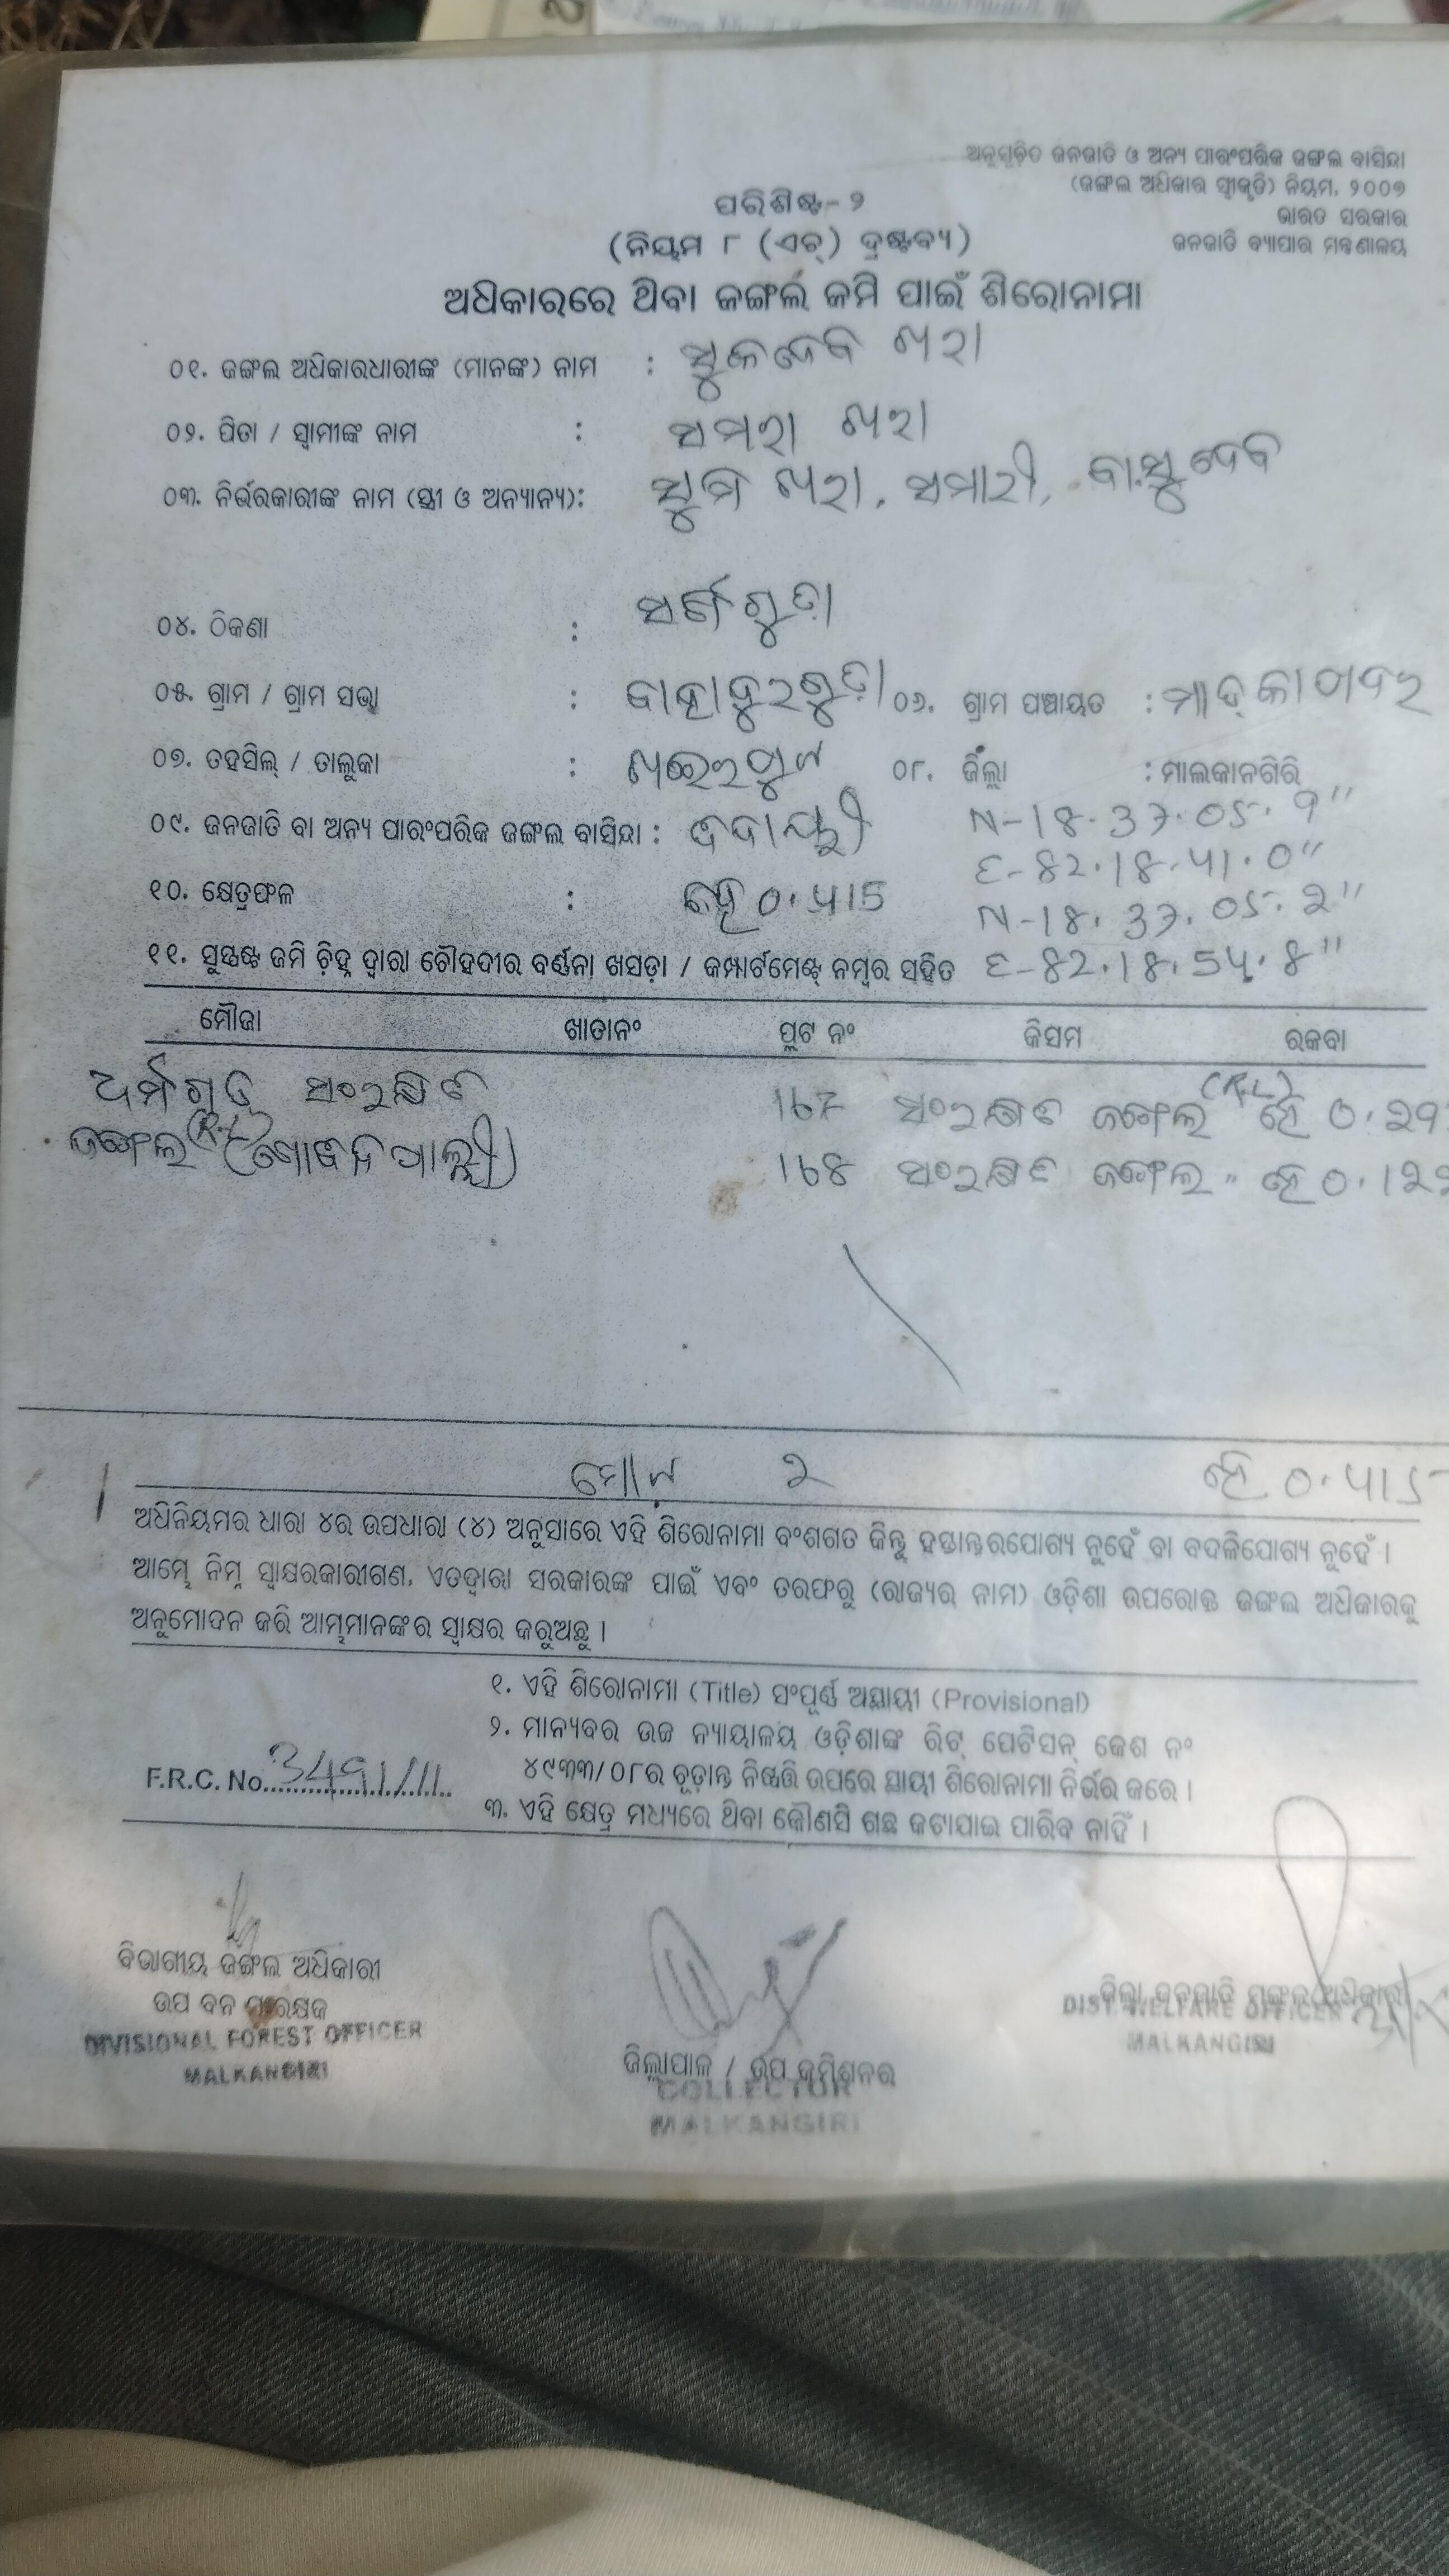 ଅନୁସୂଚିତ ଜନଜାତି ଓ ଅନ୍ୟ ପାରଂପରିକ ଜଙ୍ଗଲ ବାସିନ୍ଦା
(ଜଙ୍ଗଲ ଅଧିକାର ସ୍ୱୀକୃତି) ନିୟମ, ୨୦୦୭
ଭାରତ ସରକାର
ଜନଜାତି ବ୍ୟାପାର ମନ୍ତ୍ରଣାଳୟ
ପରିଶିଷ୍ଟ-୨
(ନିୟମ ୮ (ଏଚ୍) ଦ୍ରଷ୍ଟବ୍ୟ)
ଅଧିକାରରେ ଥିବା ଜଙ୍ଗଲ ଜମି ପାଇଁ ଶିରୋନାମା
୦୧. ଜଙ୍ଗଲ ଅଧିକାରଧାରୀଙ୍କ (ମାନଙ୍କ) ନାମ : ସୁକଦେବ ଖରା
୦୨. ପିତା / ସ୍ୱାମୀଙ୍କ ନାମ : ସମରା ଖରା
୦୩. ନିର୍ଭରକାରୀଙ୍କ ନାମ (ସ୍ତ୍ରୀ ଓ ଅନ୍ୟାନ୍ୟ): ଖରା, ସମାରୀ, ବାସୁଦେବ
୦୪. ଠିକଣା :
୦୫. ଗ୍ରାମ / ଗ୍ରାମ ସଭା : ୦୬. ଗ୍ରାମ ପଞ୍ଚାୟତ :
୦୭. ତହସିଲ୍ / ତାଲୁକା : ଖଇରପୁଟ ୦୮. ଜିଲ୍ଲା : ମାଲକାନଗିରି
୦୯. ଜନଜାତି ବା ଅନ୍ୟ ପାରଂପରିକ ଜଙ୍ଗଲ ବାସିନ୍ଦା : N-18.37.05.9"
E-82.18.41.0"
୧୦. କ୍ଷେତ୍ରଫଳ : ହେ 0.415 N-18.37.05.2"
୧୧. ସୁସ୍ପଷ୍ଟ ଜମି ଚିହ୍ନ ଦ୍ୱାରା ଚୌହଦୀର ବର୍ଣ୍ଣନା ଖସଡ଼ା / କମ୍ପାର୍ଟମେଣ୍ଟ୍ ନମ୍ବର ସହିତ E-82.18.54.8"
ମୌଜା ଖାତାନଂ ପ୍ଲଟ ନଂ କିସମ ରକବା
ସଂରକ୍ଷିତ 167 ସଂରକ୍ଷିତ ଜଙ୍ଗଲ (R.L) ହେ
ଜଙ୍ଗଲ (R.L) 168 ସଂରକ୍ଷିତ ଜଙ୍ଗଲ " ହେ
ମୋଟ ୨ ହେ 0.415
ଅଧିନିୟମର ଧାରା ୪ର ଉପଧାରା (୪) ଅନୁସାରେ ଏହି ଶିରୋନାମା ବଂଶଗତ କିନ୍ତୁ ହସ୍ତାନ୍ତରଯୋଗ୍ୟ ନୁହେଁ ବା ବଦଳିଯୋଗ୍ୟ ନୁହେଁ ।
ଆମ୍ଭେ ନିମ୍ନ ସ୍ୱାକ୍ଷରକାରୀଗଣ, ଏତଦ୍ୱାରା ସରକାରଙ୍କ ପାଇଁ ଏବଂ ତରଫରୁ (ରାଜ୍ୟର ନାମ) ଓଡ଼ିଶା ଉପରୋକ୍ତ ଜଙ୍ଗଲ ଅଧିକାରକୁ
ଅନୁମୋଦନ କରି ଆମ୍ଭମାନଙ୍କର ସ୍ୱାକ୍ଷର କରୁଅଛୁ ।
୧. ଏହି ଶିରୋନାମା (Title) ସଂପୂର୍ଣ୍ଣ ଅସ୍ଥାୟୀ (Provisional)
୨. ମାନ୍ୟବର ଉଚ୍ଚ ନ୍ୟାୟାଳୟ ଓଡ଼ିଶାଙ୍କ ରିଟ୍ ପେଟିସନ୍ କେଶ ନଂ
୪୯୩୩/୦୮ର ଚୂଡ଼ାନ୍ତ ନିଷ୍ପତ୍ତି ଉପରେ ସ୍ଥାୟୀ ଶିରୋନାମା ନିର୍ଭର କରେ ।
F.R.C. No.
୩. ଏହି କ୍ଷେତ୍ର ମଧ୍ୟରେ ଥିବା କୌଣସି ଗଛ କଟାଯାଇ ପାରିବ ନାହିଁ ।
ବିଭାଗୀୟ ଜଙ୍ଗଲ ଅଧିକାରୀ
ଉପ ବନ ସଂରକ୍ଷକ
DIVISIONAL FOREST OFFICER
MALKANGIRI
ଜିଲ୍ଲାପାଳ / ଉପ କମିଶନର
COLLECTOR
MALKANGIRI
ଜିଲ୍ଲା ଜନଜାତି ମଙ୍ଗଳ ଅଧିକାରୀ
DIST. WELFARE OFFICER
MALKANGIRI